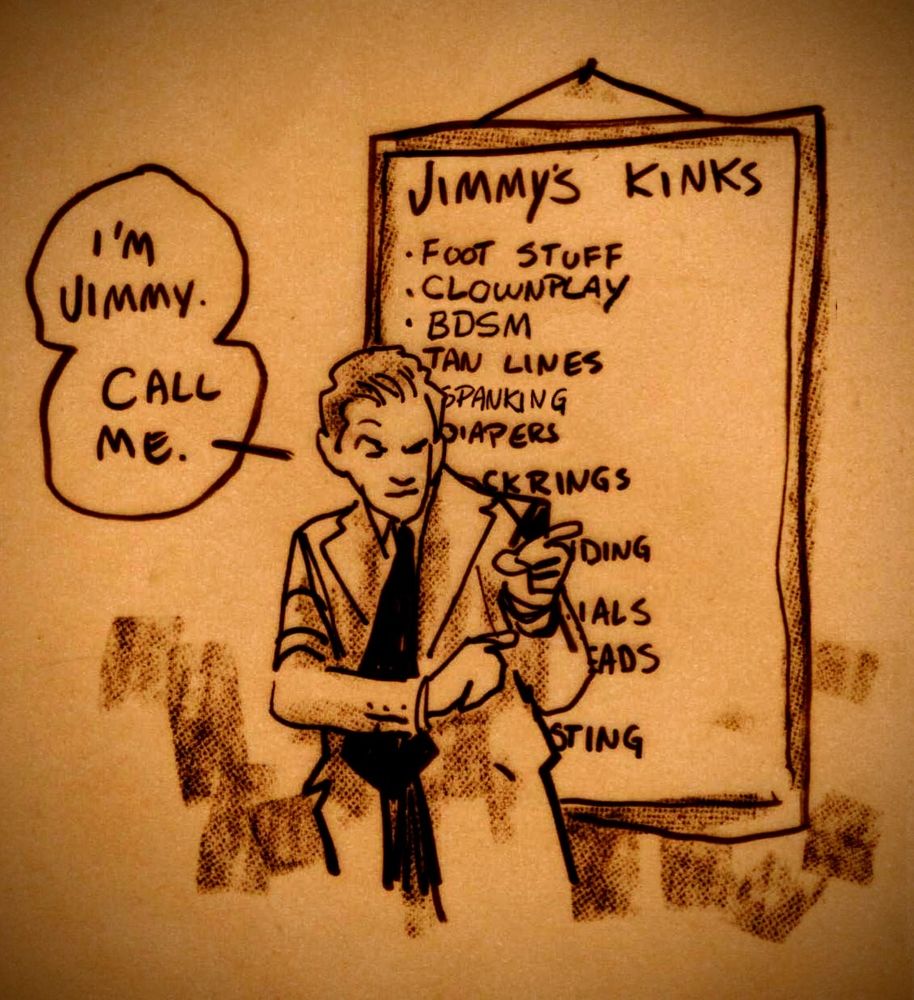 I'M
JIMMY.
CALL
ME.
JIMMY'S KINKS
• FOOT STUFF
• CLOWNPLAY
• BDSM
TAN LINES
SPANKING
DIAPERS
CKRINGS
DING
IALS
EADS
STING